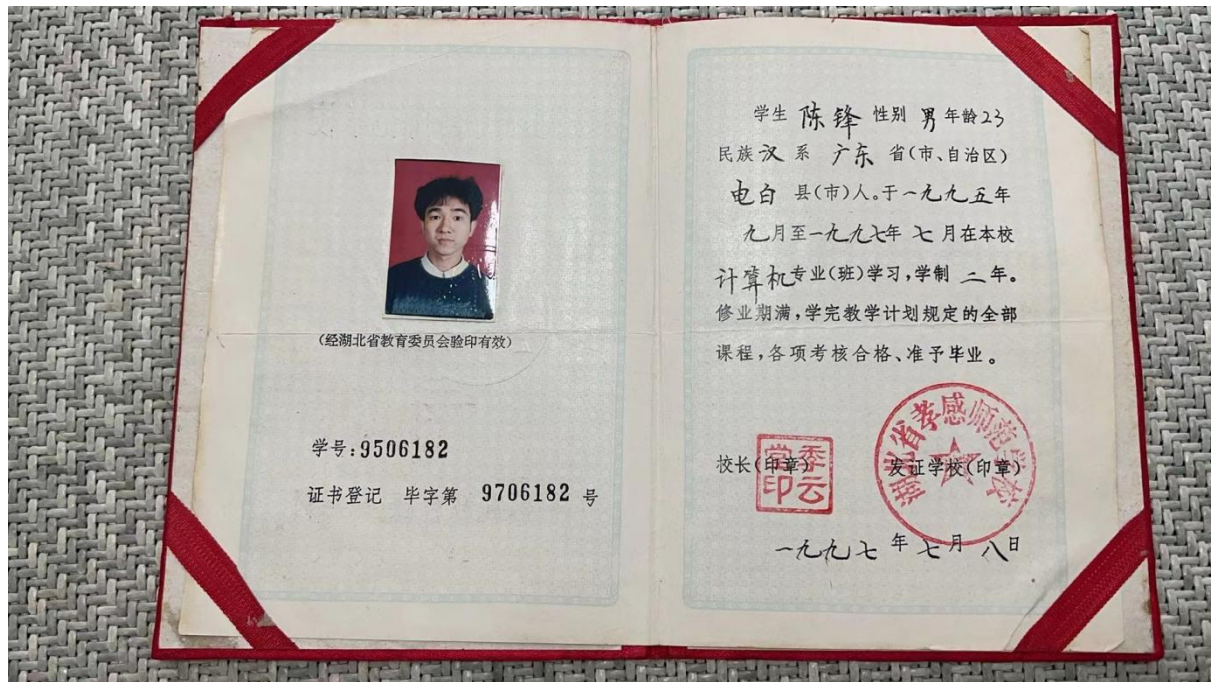 (经湖北省教育委员会验印有效)
学号:9506182
证书登记 毕字第 9706182 号
学生 陈锋 性别 男 年龄23
民族汉 系 广东 省(市、自治区)
电白 县(市)人。于一九九五年
九月至一九九七年 七月在本校
计算机专业(班)学习,学制 二年。
修业期满,学完教学计划规定的全部
课程,各项考核合格、准予毕业。
校长(印章) 发证学校(印章)
湖北省孝感师范学校
一九九七 年 七 月 八日